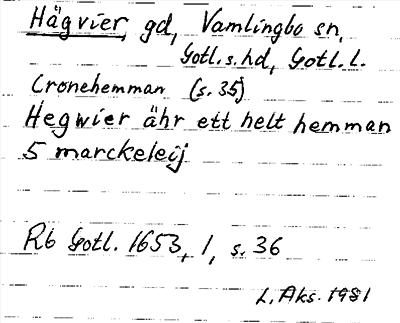 Hägvier, gd, Vamlingbo sn,
Gotl. s. hd, Gotl. l.
Cronehemman (s. 35)
Hegwier ähr ett helt hemman
5 marckeleij
Rb Gotl. 1653, 1, s. 36
L. Aks. 1981